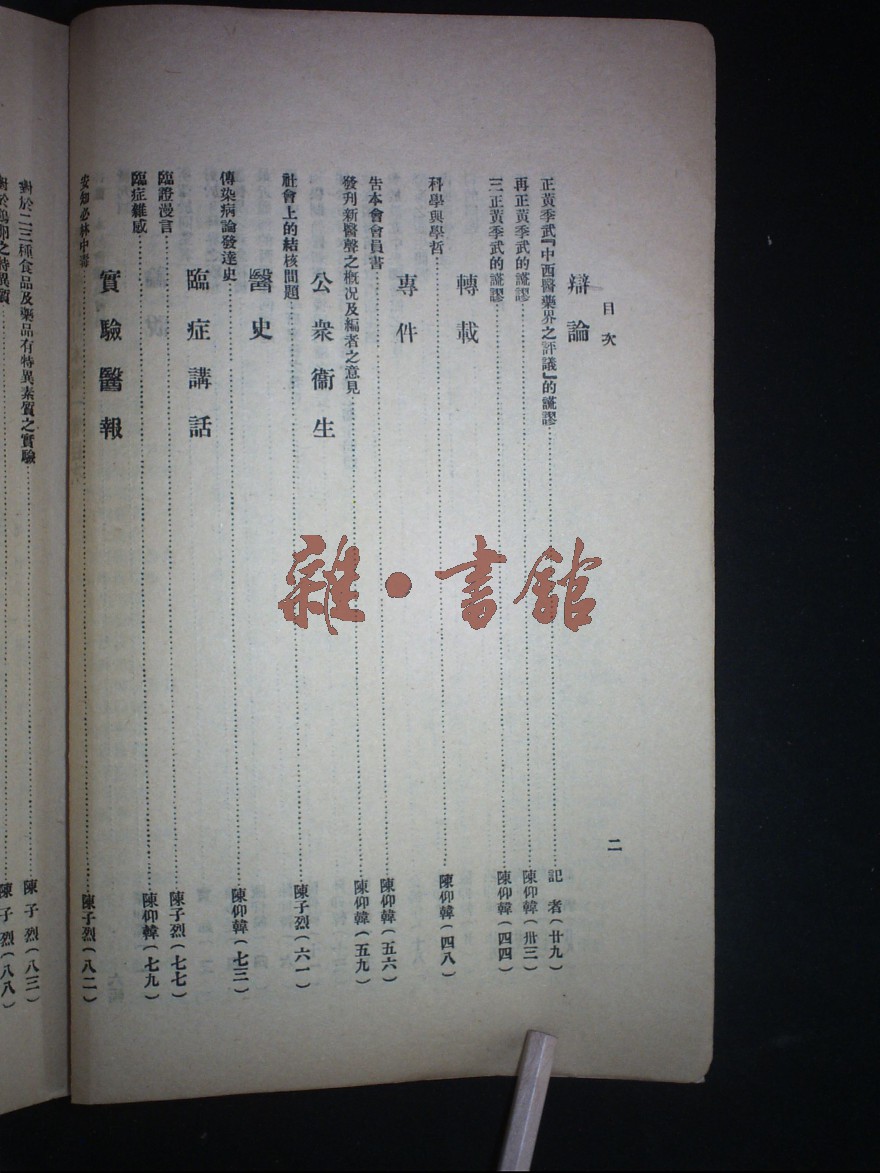 目次
二
辯論
正黃季武『中西醫藥界之評議』的謊謬……記者(廿九)
再正黃季武的謊謬……陳仰韓(卅三)
三正黃季武的謊謬……陳仰韓(四四)
轉載
科學與學哲……陳仰韓(四八)
專件
告本會會員書……陳仰韓(五六)
發刊新醫聲之概况及編者之意見……陳仰韓(五九)
公衆衞生
社會上的結核問題……陳子烈(六一)
醫史
傳染病論發達史……陳仰韓(七三)
臨症講話
臨證漫言……陳子烈(七七)
臨症雜感……陳仰韓(七九)
實驗醫報
安知必林中毒……陳子烈(八二)
對於二三種食品及藥品有特異素質之實驗……陳子烈(八三)
對於鷄卵之特異質……陳子烈(八八)
雜·書館